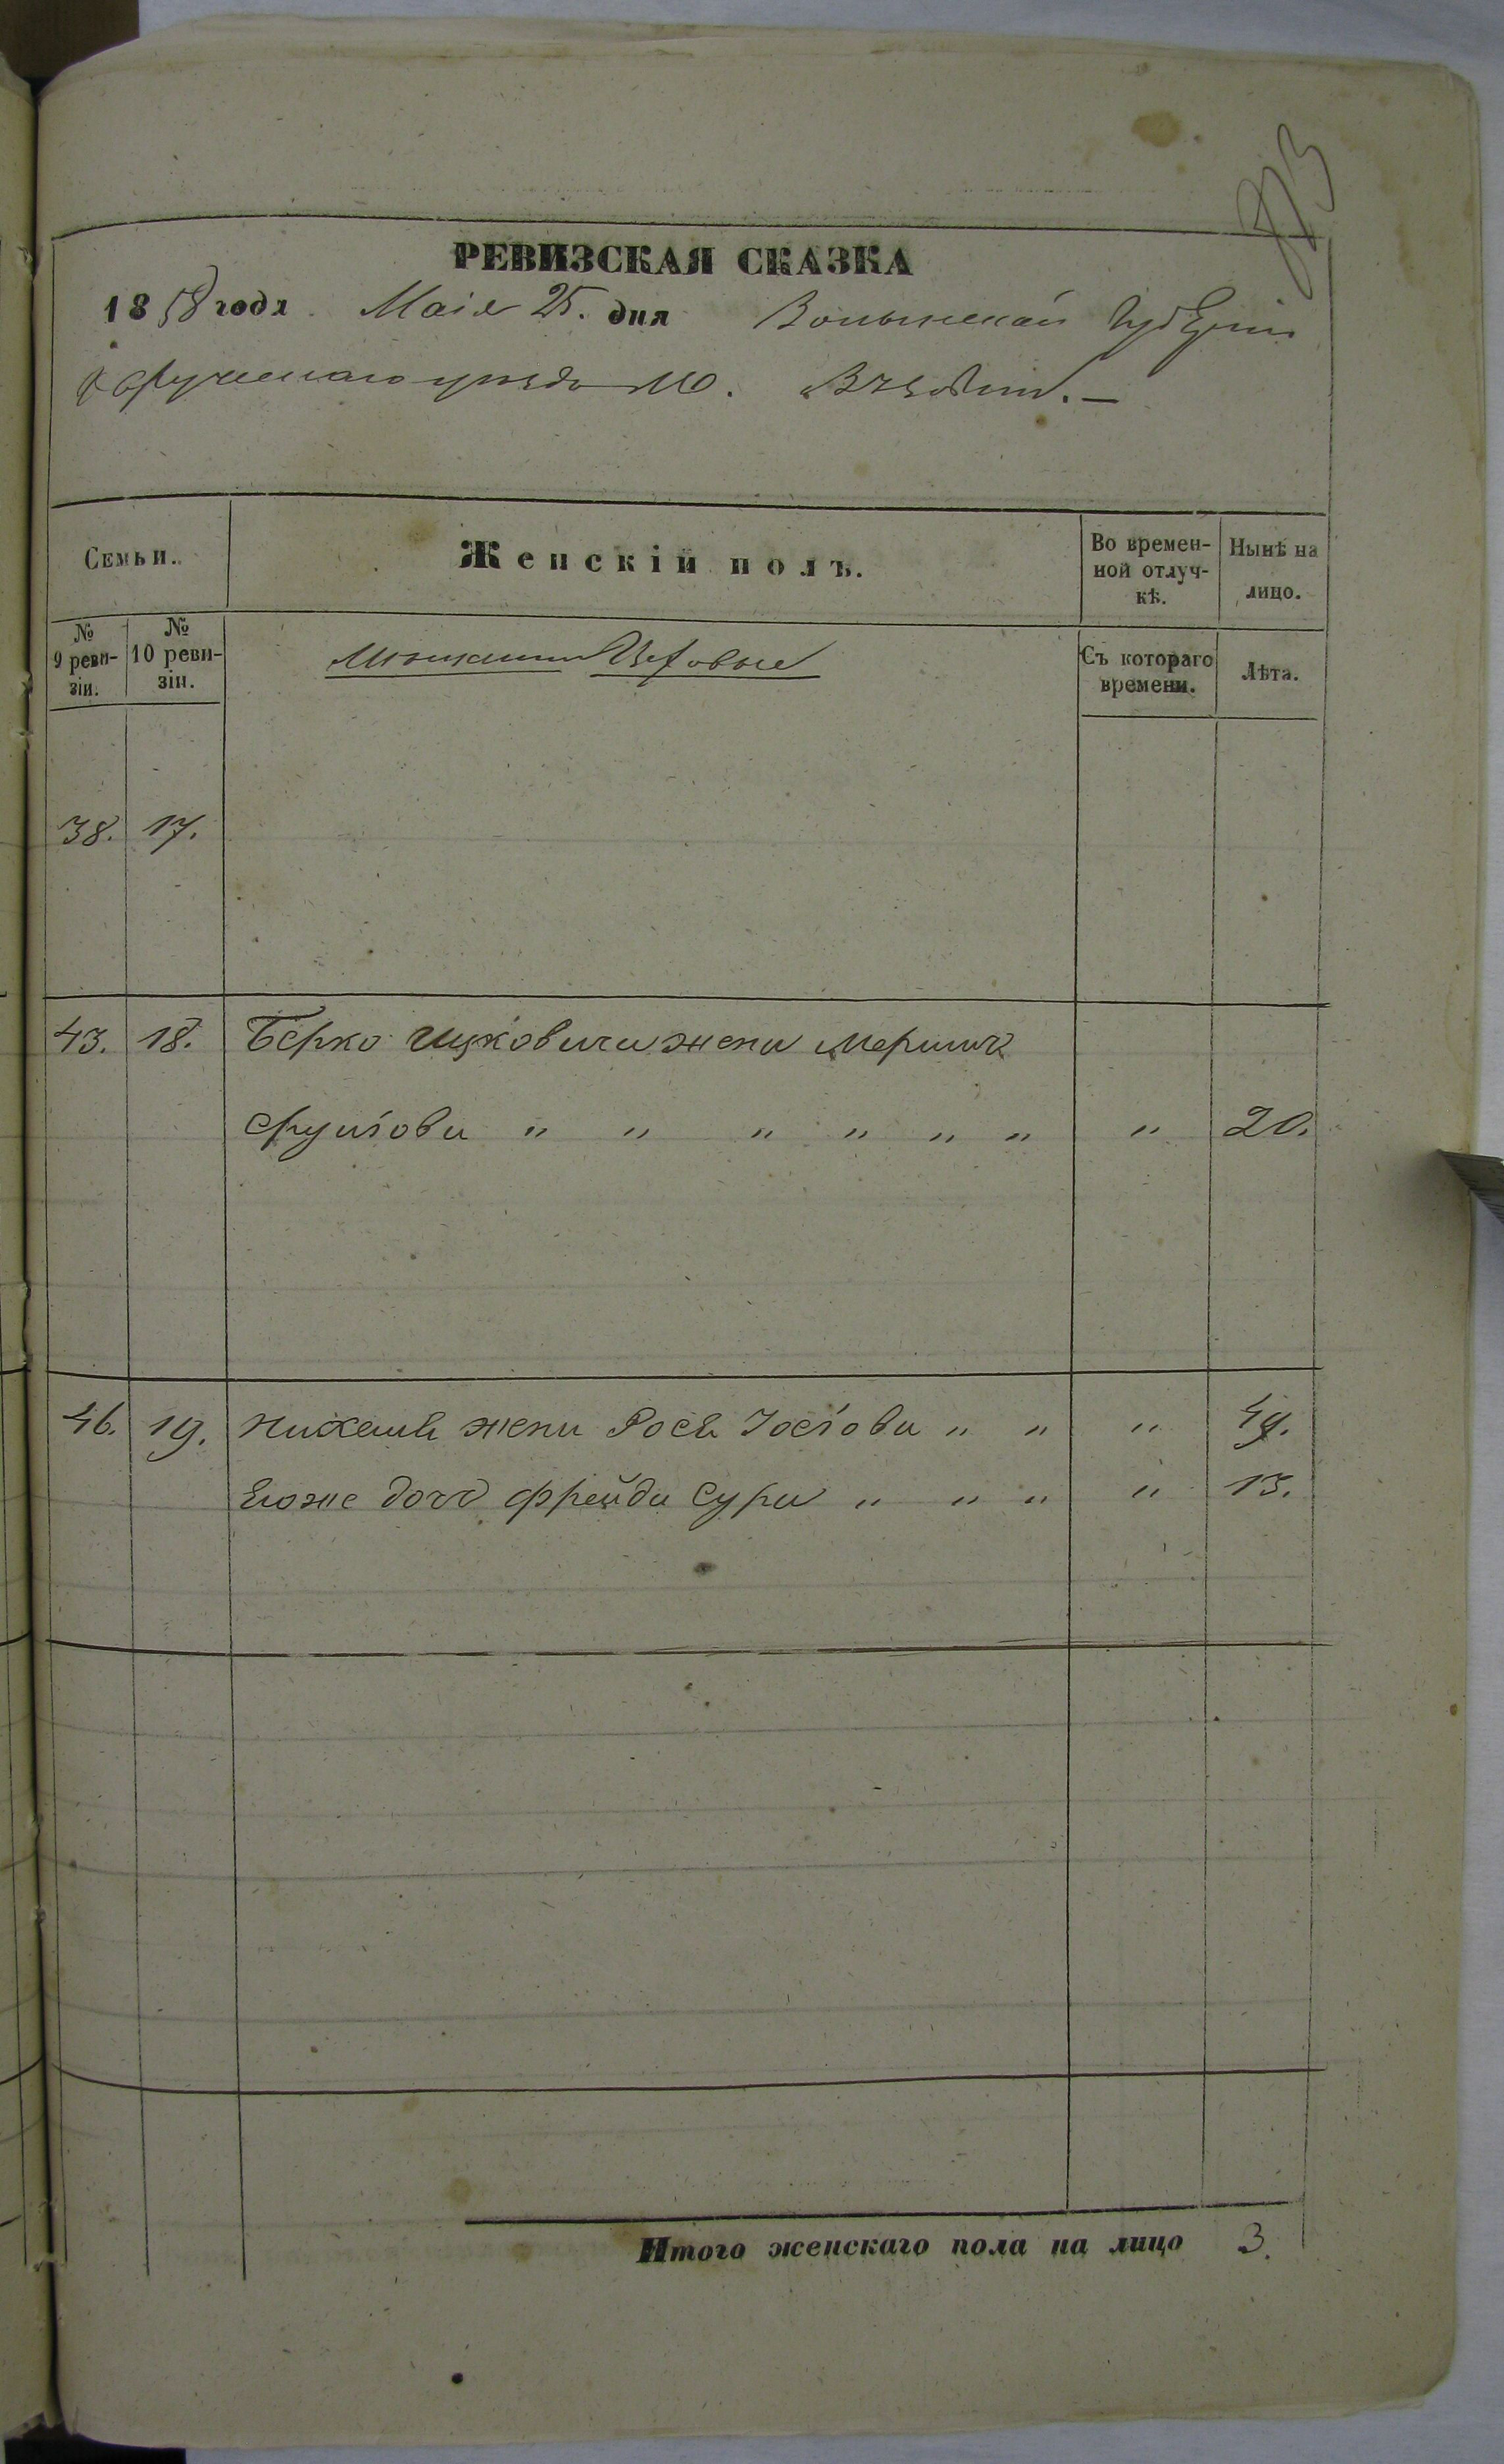 РЕВИЗСКАЯ СКАЗКА
1858 года Маія 25. дня Волынской Губерніи
Овручскаго уѣзда М.
Семьи.
Женскій полъ.
Во времен-
ной отлуч-
кѣ.
Нынѣ на
лицо.
№
9 реви-
зіи.
№
10 реви-
зіи.
Мѣщане Цеховые
Съ котораго
времени.
Лѣта.
38. 17.
43. 18. Берко Ицковича жена
" " " " " " " 20.
46. 19. жена Рося Іосіова " " " 49.
Егоже дочь Фрейда Сура " " " " 13.
Итого женскаго пола на лицо 3.